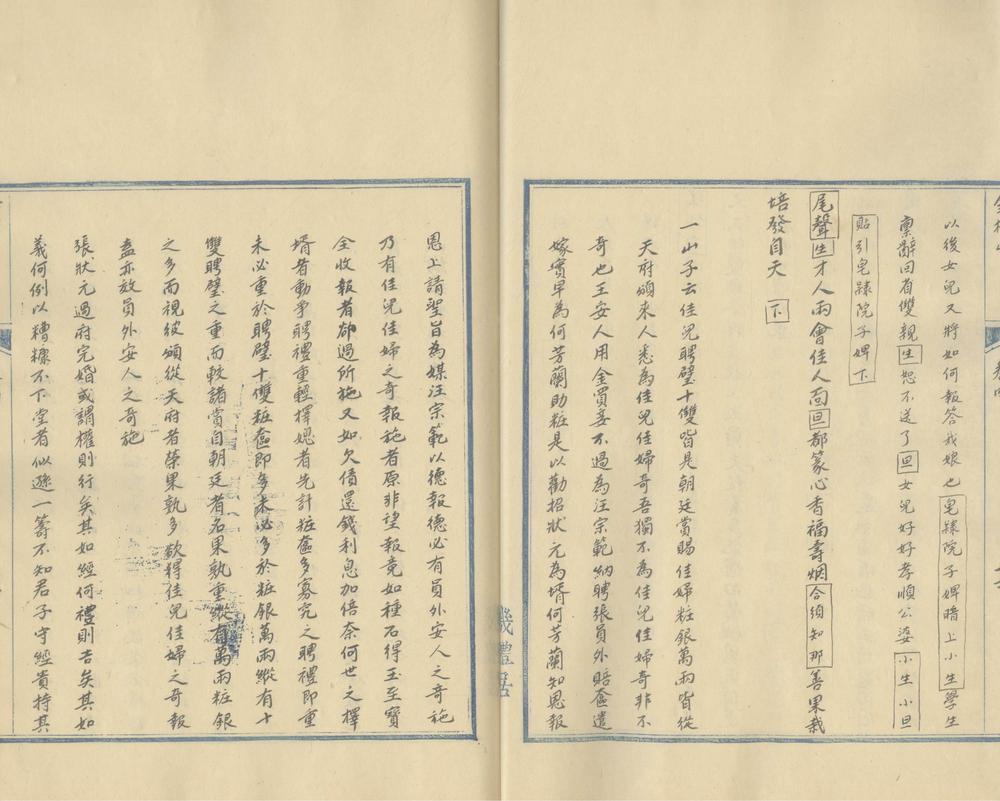 以後女兒又將如何報答我娘也皂隸院子婢暗上小生學生
禀辭回省雙親生恕不送了旦女兒好好孝順公婆小生小旦
貼引皂隸院子婢下
尾聲生才人兩會佳人面旦都篆心香福壽烟合須知那善果栽
培發自天下
一山子云佳兒聘璧十雙皆是朝廷賞賜佳婦粧銀萬兩皆從
天府頒來人悉為佳兒佳婦奇吾獨不為佳兒佳婦奇非不
奇也王安人用金買妾不過為汪宗範納聘張員外賠奩遣
嫁實早為何芳蘭助粧是以勸招狀元為壻何芳蘭知恩報
恩上請聖旨為媒汪宗範以德報德必有員外安人之奇施
乃有佳兒佳婦之奇報施者原非望報竟如種石得玉至寶
全收報者却過所施又如欠債還錢利息加倍奈何世之擇
壻者動爭聘禮重輕擇媳者先計粧奩多寡究之聘禮即重
未必重於聘璧十雙粧奩即多未必多於粧銀萬兩縱有十
雙聘璧之重而較諸賞自朝廷者名果孰重縱有萬兩粧銀
之多而視彼頒從天府者榮果孰多欲得佳兒佳婦之奇報
盍亦放員外安人之奇施
張狀元過府完婚或謂權則行矣其如經何禮則吉矣其如
義何例以糟糠不下堂者似遜一籌不知君子守經貴持其